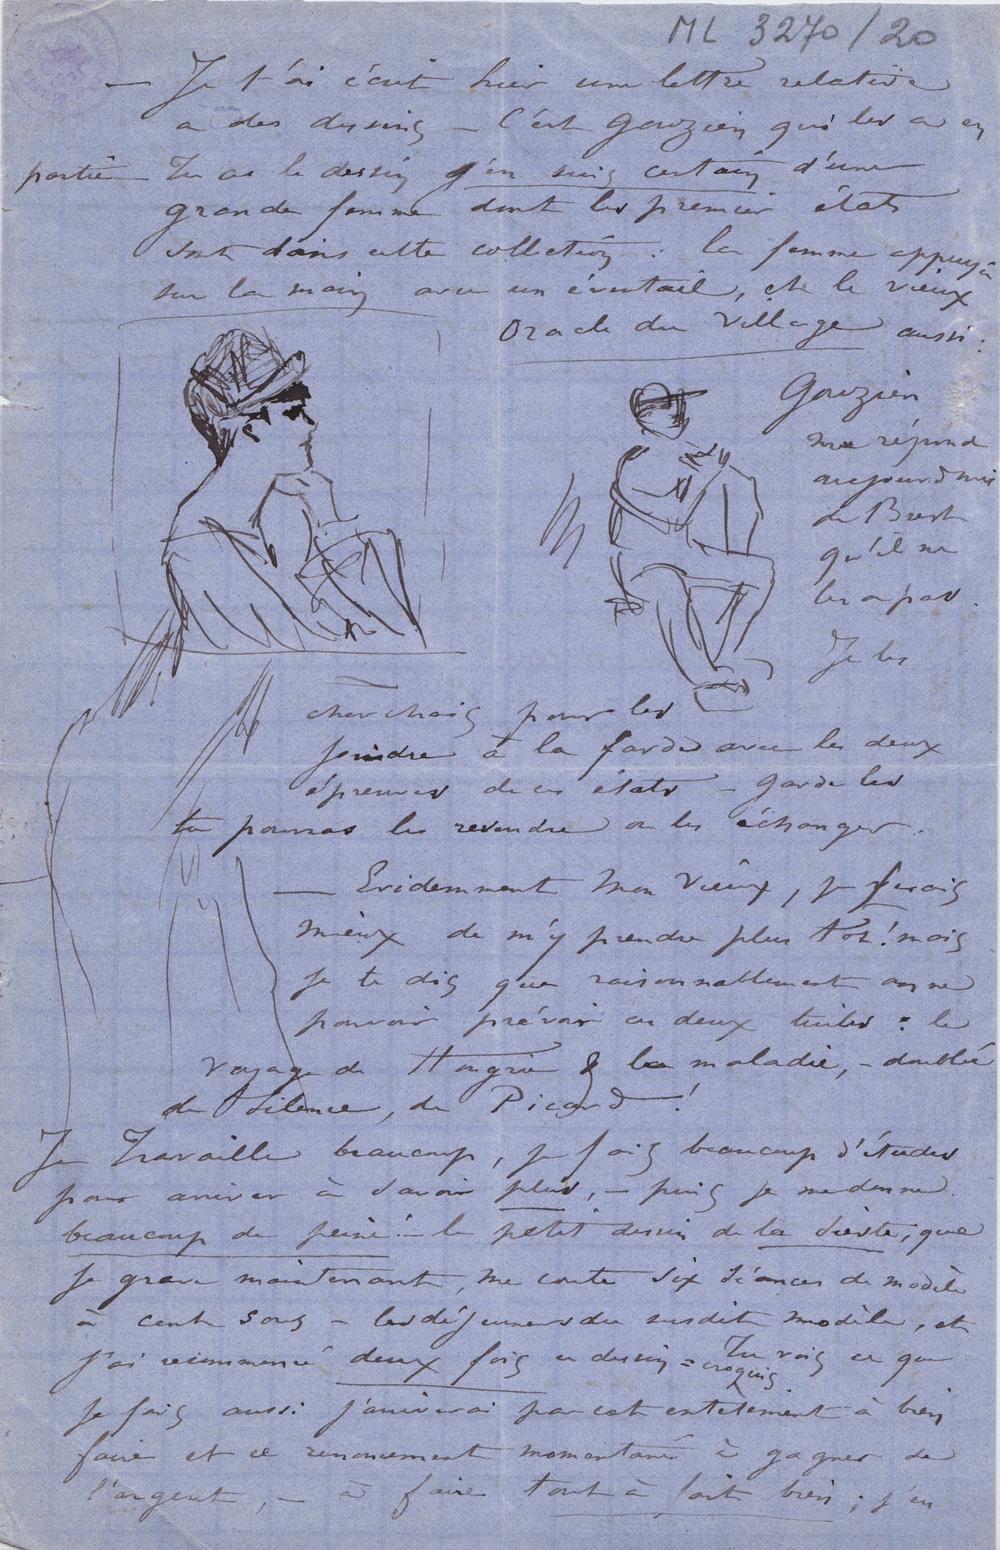 ML 3270/20
— Je t'ai écrit hier une lettre relative
a des dessins — C'est Gouzien qui les a en
partie — Tu as le dessin j'en suis certain d'une
grande femme dont les premier états
sont dans cette collection : la femme appuyée
sur la main avec un éventail, et le vieux
Oracle du Village aussi.
Gouzien
me répond
aujourd'hui
de Brest
qu'il ne
les a pas.
Je les
cherchais pour les
joindre à la farde avec les deux
épreuves de ces états — garde les
tu pourras les revendre ou les échanger.
— Evidemment mon vieux, je ferais
mieux de m'y prendre plus tôt ! mais
je te dis que raisonnablement on ne
pouvait prévoir ces deux tuiles : le
voyage de Hongrie & la maladie, – doublée
de silence, de Picard !
Je Travaille beaucoup, je fais beaucoup d'études
pour arriver à savoir plus, – puis je me donne
beaucoup de peine ! – le petit dessin de la Sieste, que
je grave maintenant, me coute six séances de modèle
à cent sous – les déjeuners du susdit modèle, et
j'ai recommencé deux fois ce dessin = Tu vois ce que
croquis
je fais aussi j'arriverai par cet entetement à bien
faire et ce renoncement momentané à gagner de
l'argent, – à faire tout à fait bien ; j'en